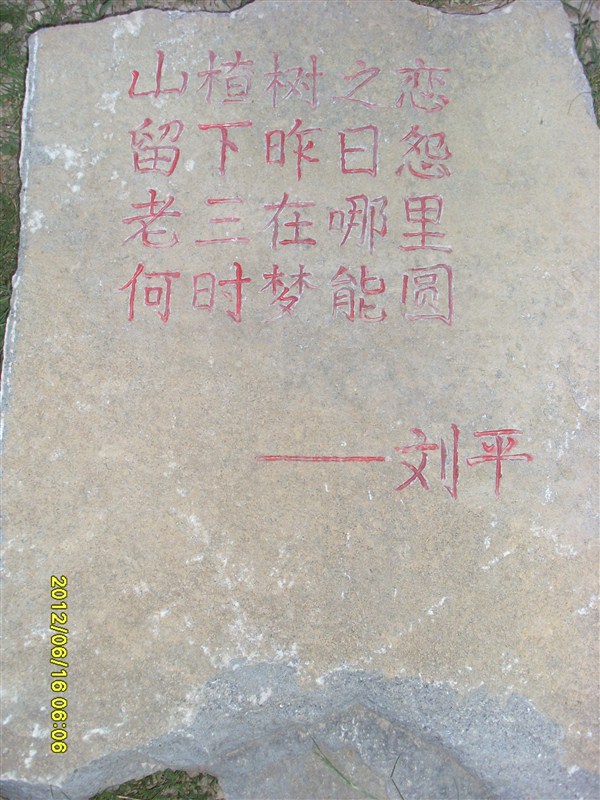 山楂树之恋
留下昨日怨
老三在哪里
何时梦能圆
——刘平
2012/06/16 06:06